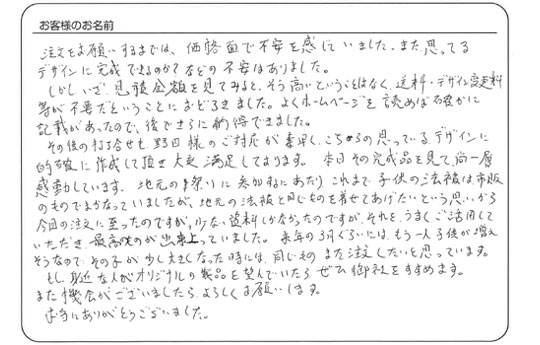 お客様のお名前
注文をお願いするまでは、価格面で不安を感じていました。また思ってる
デザインに完成できるのか?などの不安はありました。
しかしいざ、見積金額を見てみると、そう高いということはなく、送料・デザイン設定料
等が不要だということにおどろきました。よくホームページを読めば確かに
記載があったので、後でさらに納得できました。
その後の打合せも野田様のご対応が素早く、こちらの思っているデザインに
的確に作成して頂き大変満足しております。 本日その完成品を見て、尚一層
感動しています。 地元の祭りに参加するにあたり、これまで子供の法被は市販
のものでまかなっていましたが、地元の法被と同じものを着せてあげたいという思いから
今回の注文に至ったのですが、少ない資料しかなかったのですが、それをうまくご活用して
いただき、最高のものが出来上っていました。 来年の3月ぐらいには、もう一人子供が増え
そうなので、その子が少し大きくなった時には、同じもの また注文したいと思っています。
もし、身近な人がオリジナルの製品を望んでいたら ぜひ御社をすすめます。
また機会がございましたら、よろしくお願いします。
本当にありがとうございました。